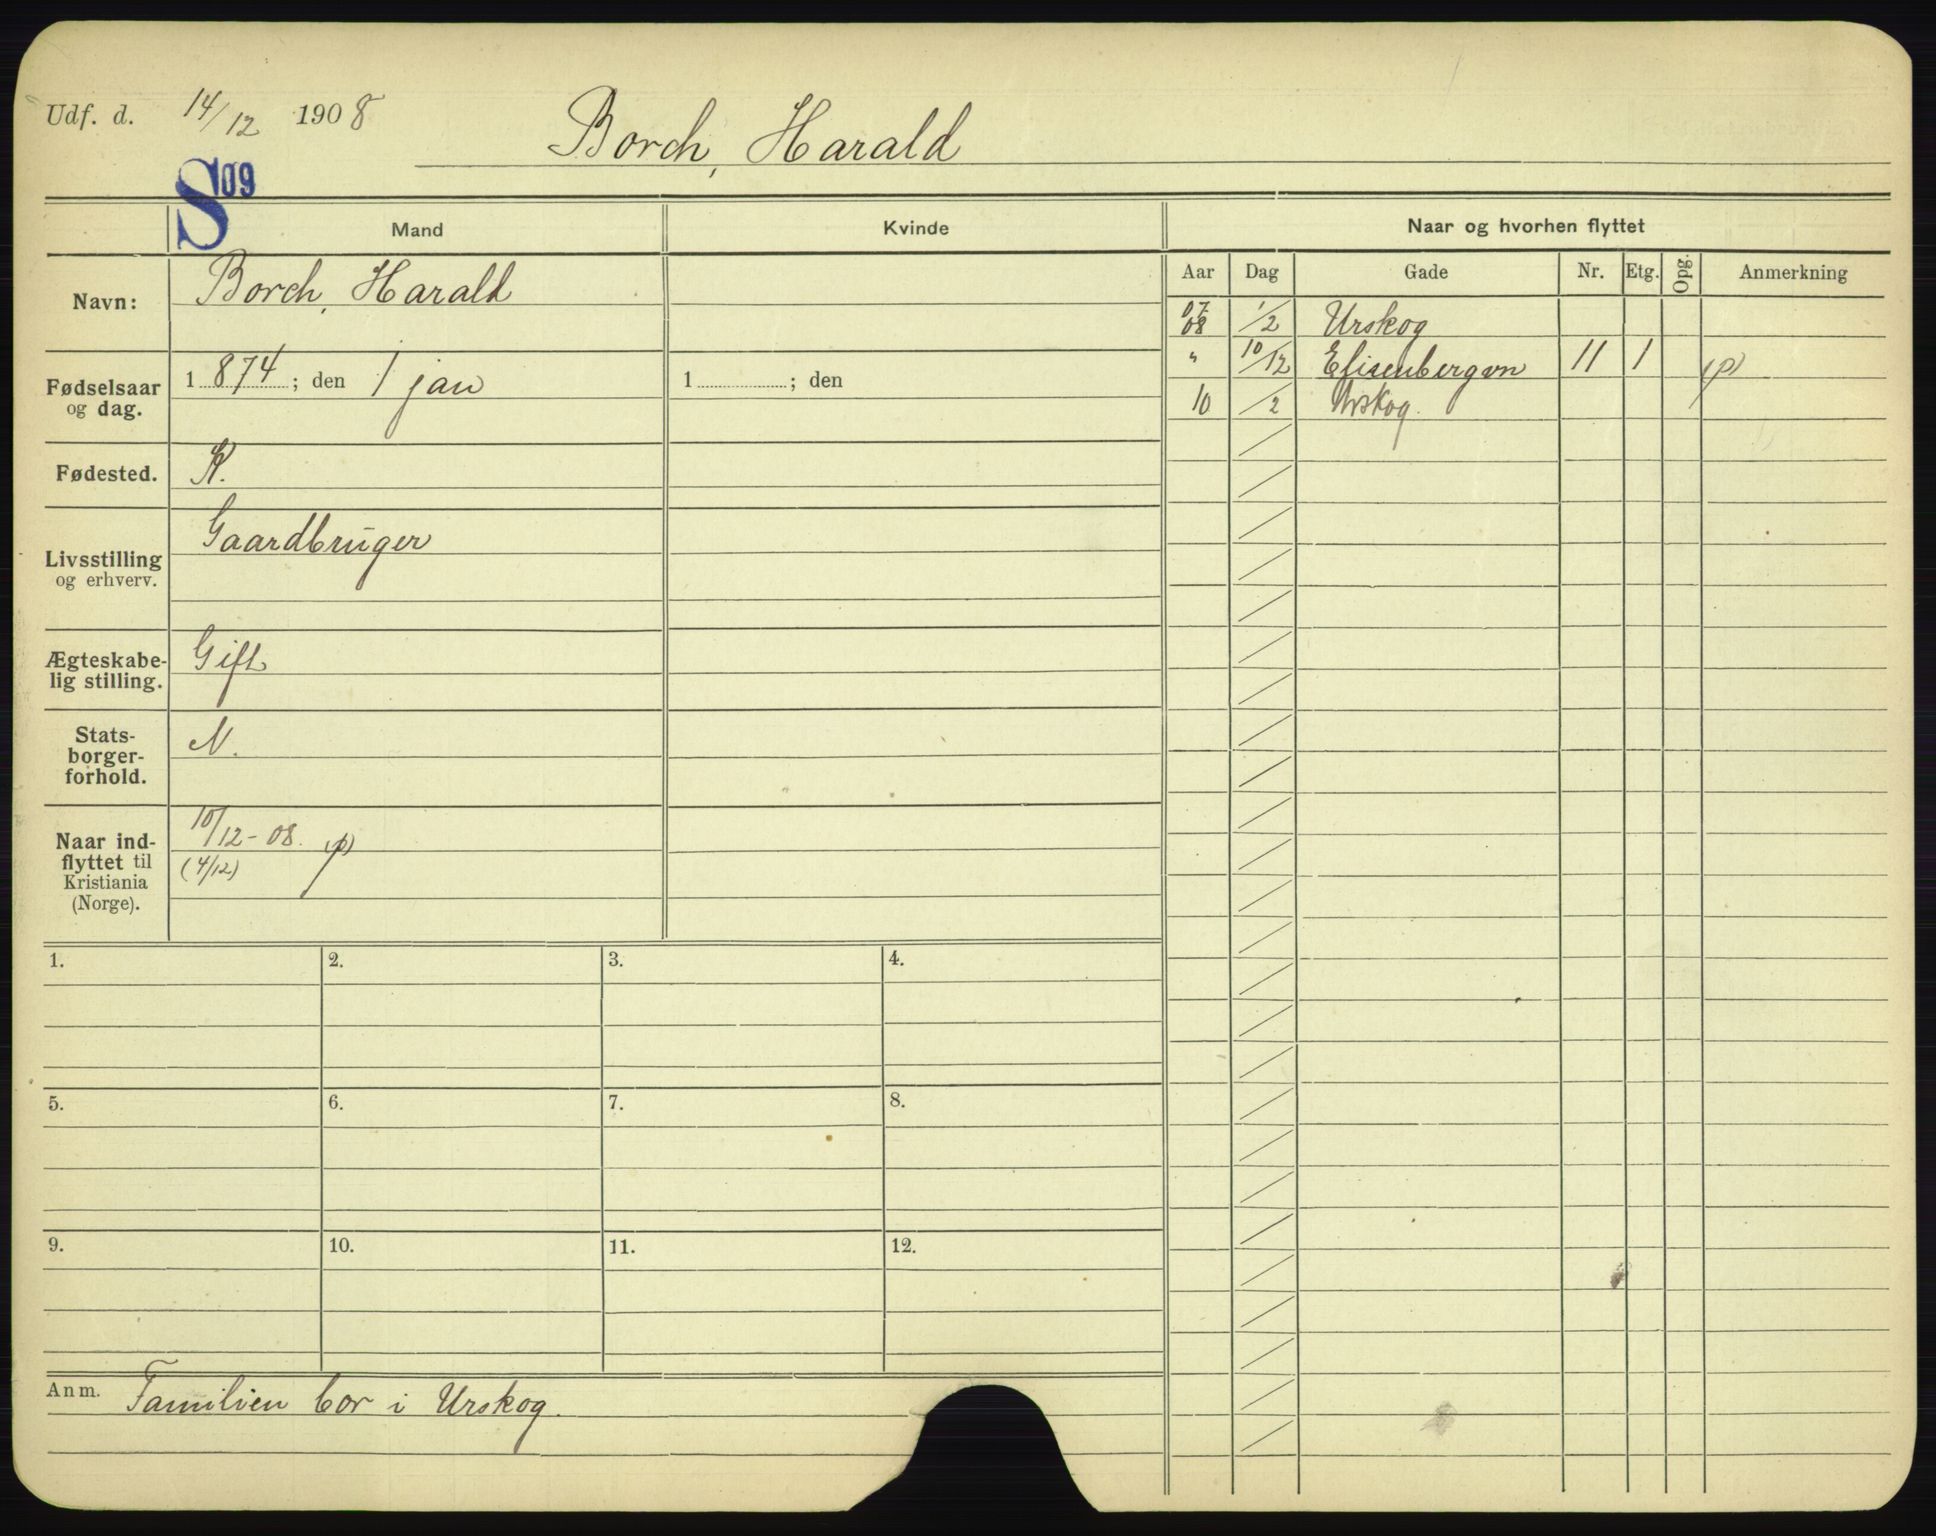 Udf. d. 14/12 1908
Borch, Harald
S09
Mand
Kvinde
Naar og hvorhen flyttet
Aar Dag Gade Nr. Etg. Opg. Anmerkning
Navn: Borch, Harald
07 08 1/2 Urskog
Fødselsaar og dag. 1 874; den 1 jan
1 ; den
" 10/12 Elisenbergvn 11 1 (p)
10 /2 Urskog.
Fødested. K.
Livsstilling og erhverv. Gaardbruger
Ægteskabe-
lig stilling. Gift
Stats-
borger-
forhold. N.
Naar ind-
flyttet til
Kristiania
(Norge).
10/12-08. (p)
(4/12)
1. 2. 3. 4.
5. 6. 7. 8.
9. 10. 11. 12.
Anm. Familien bor i Urskog.